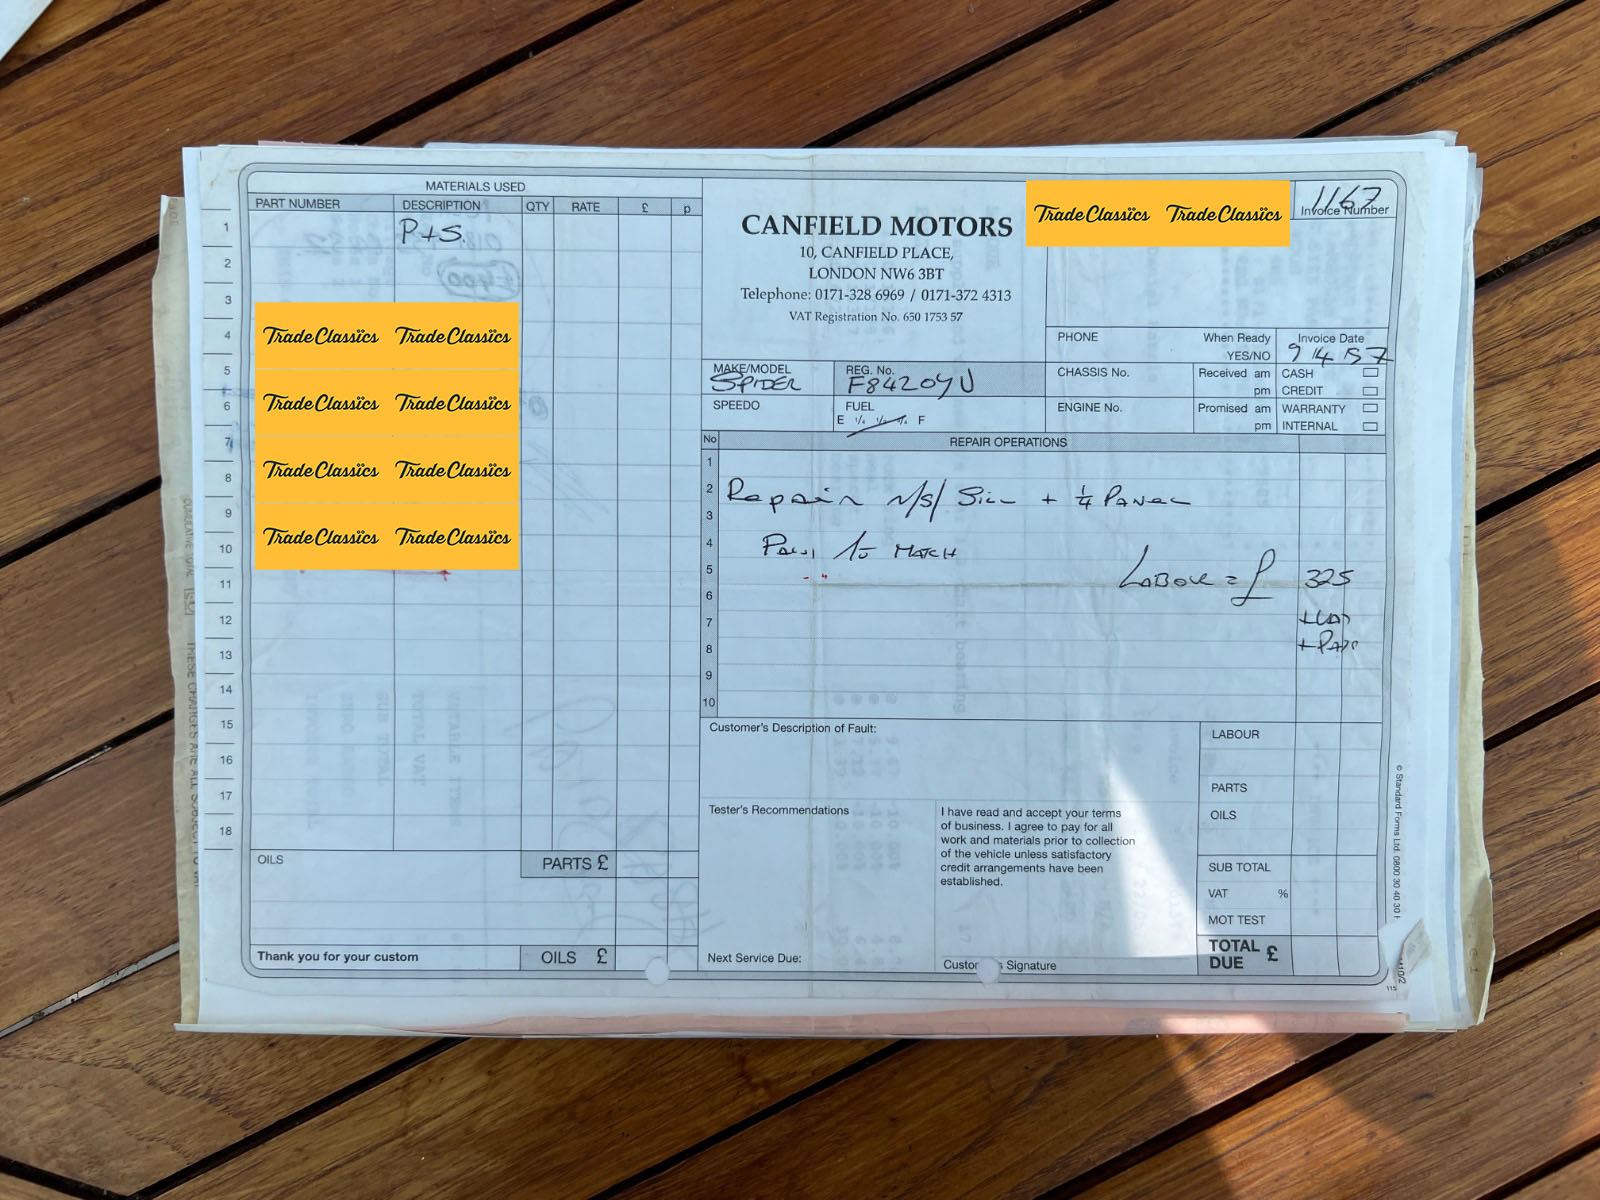 MATERIALS USED
PART NUMBER DESCRIPTION QTY RATE £ p
P+S.
£400
1
2
3
4
5
6
7
8
9
10
11
12
13
14
15
16
17
18
TradeClassics TradeClassics
TradeClassics TradeClassics
TradeClassics TradeClassics
TradeClassics TradeClassics
OILS
PARTS £
Thank you for your custom
OILS £
CANFIELD MOTORS
10, CANFIELD PLACE,
LONDON NW6 3BT
Telephone: 0171-328 6969 / 0171-372 4313
VAT Registration No. 650 1753 57
TradeClassics TradeClassics
1167
Invoice Number
PHONE
When Ready
YES/NO
Invoice Date
9 4 57
MAKE/MODEL
SPIDER
REG. No.
F842OYU
CHASSIS No.
Received am
pm
CASH
CREDIT
SPEEDO
FUEL
E 1/4 1/2 3/4 F
ENGINE No.
Promised am
pm
WARRANTY
INTERNAL
No REPAIR OPERATIONS
1
2 Repair N/S/ Sill + 1/4 Panel
3
4 to MATCH
5 LABOUR = £ 325
6
7
8
9
10
Customer's Description of Fault:
Tester's Recommendations
I have read and accept your terms
of business. I agree to pay for all
work and materials prior to collection
of the vehicle unless satisfactory
credit arrangements have been
established.
Next Service Due:
Signature
LABOUR
PARTS
OILS
SUB TOTAL
VAT %
MOT TEST
TOTAL
DUE £
© Standard Forms Ltd. 0800 30 40 30